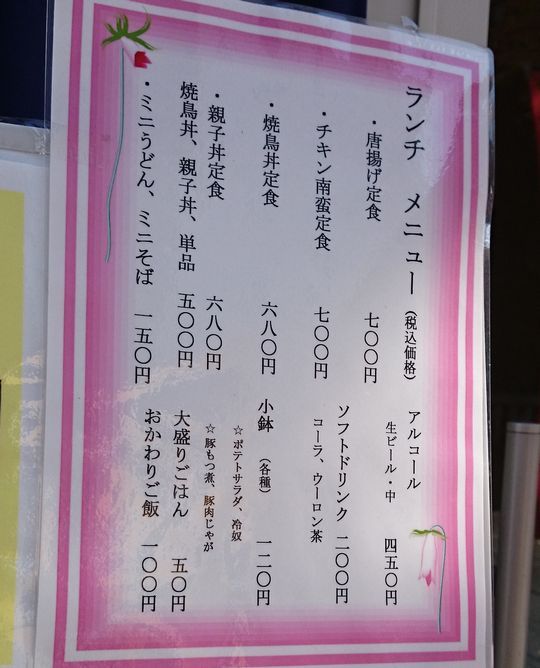 ランチ メニュー (税込価格)
・唐揚げ定食 七〇〇円
・チキン南蛮定食 七〇〇円
・焼鳥丼定食 六八〇円
・親子丼定食 六八〇円
焼鳥丼、親子丼、単品 五〇〇円
・ミニうどん、ミニそば 一五〇円
アルコール
生ビール・中 四五〇円
ソフトドリンク 二〇〇円
コーラ、ウーロン茶
小鉢 (各種) 一二〇円
☆ポテトサラダ、冷奴
☆豚もつ煮、豚肉じゃが
大盛りごはん 五〇円
おかわりご飯 一〇〇円